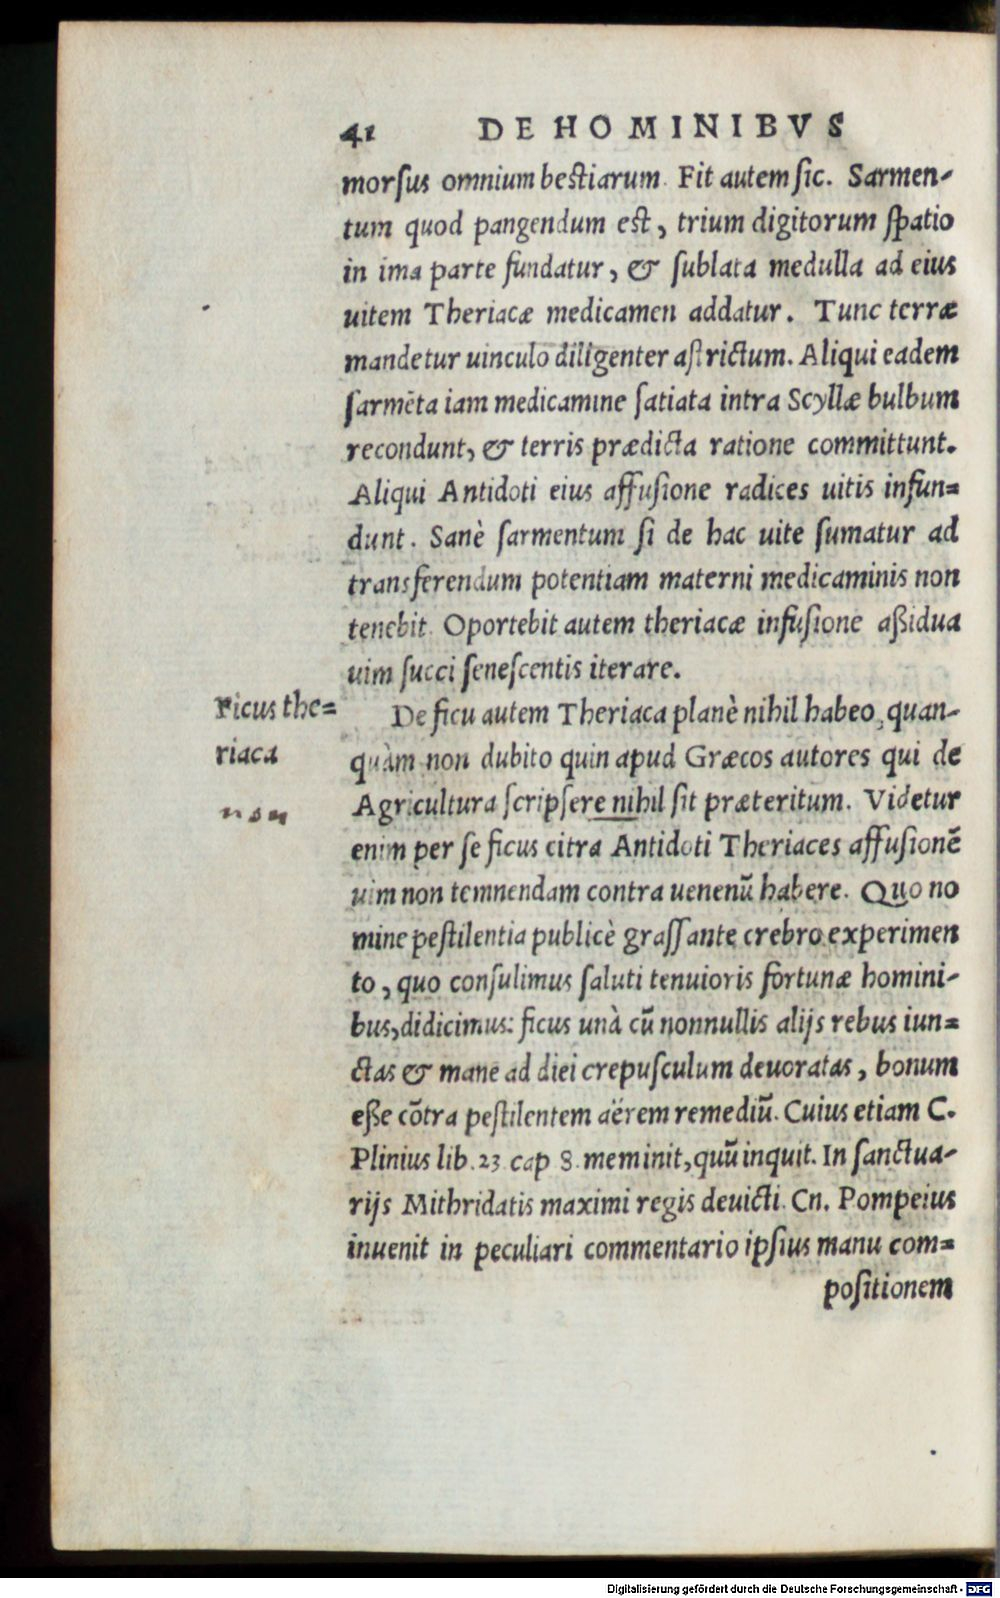 41 DE HOMINIBVS
morſus omnium beſtiarum. Fit autem ſic. Sarmen-
tum quod pangendum eſt, trium digitorum ſpatio
in ima parte fundatur, & ſublata medulla ad eius
uitem Theriacæ medicamen addatur. Tunc terræ
mandetur uinculo diligenter aſtrictum. Aliqui eadem
ſarmẽta iam medicamine ſatiata intra Scyllæ bulbum
recondunt, & terris prædicta ratione committunt.
Aliqui Antidoti eius affuſione radices uitis infun=
dunt. Sanè ſarmentum ſi de hac uite ſumatur ad
transferendum potentiam materni medicaminis non
tenebit. Oportebit autem theriacæ infuſione aßidua
uim ſucci ſeneſcentis iterare.
Ficus the=
riaca
non
De ficu autem Theriaca planè nihil habeo, quan-
quàm non dubito quin apud Græcos autores qui de
Agricultura ſcripſere nihil ſit præteritum. Videtur
enim per ſe ficus citra Antidoti Theriaces affuſionẽ
uim non temnendam contra uenenũ habere. Quo no
mine peſtilentia publicè graſſante crebro experimen
to, quo conſulimus ſaluti tenuioris fortunæ homini-
bus, didicimus: ficus unà cũ nonnullis alijs rebus iun=
ctas & mane ad diei crepuſculum deuoratas, bonum
eße cõtra peſtilentem aërem remediũ. Cuius etiam C.
Plinius lib. 23. cap 8. meminit, quũ inquit. In ſanctua-
rijs Mithridatis maximi regis deuicti. Cn. Pompeius
inuenit in peculiari commentario ipſius manu com=
poſitionem
Digitalisierung gefördert durch die Deutsche Forschungsgemeinschaft - DFG